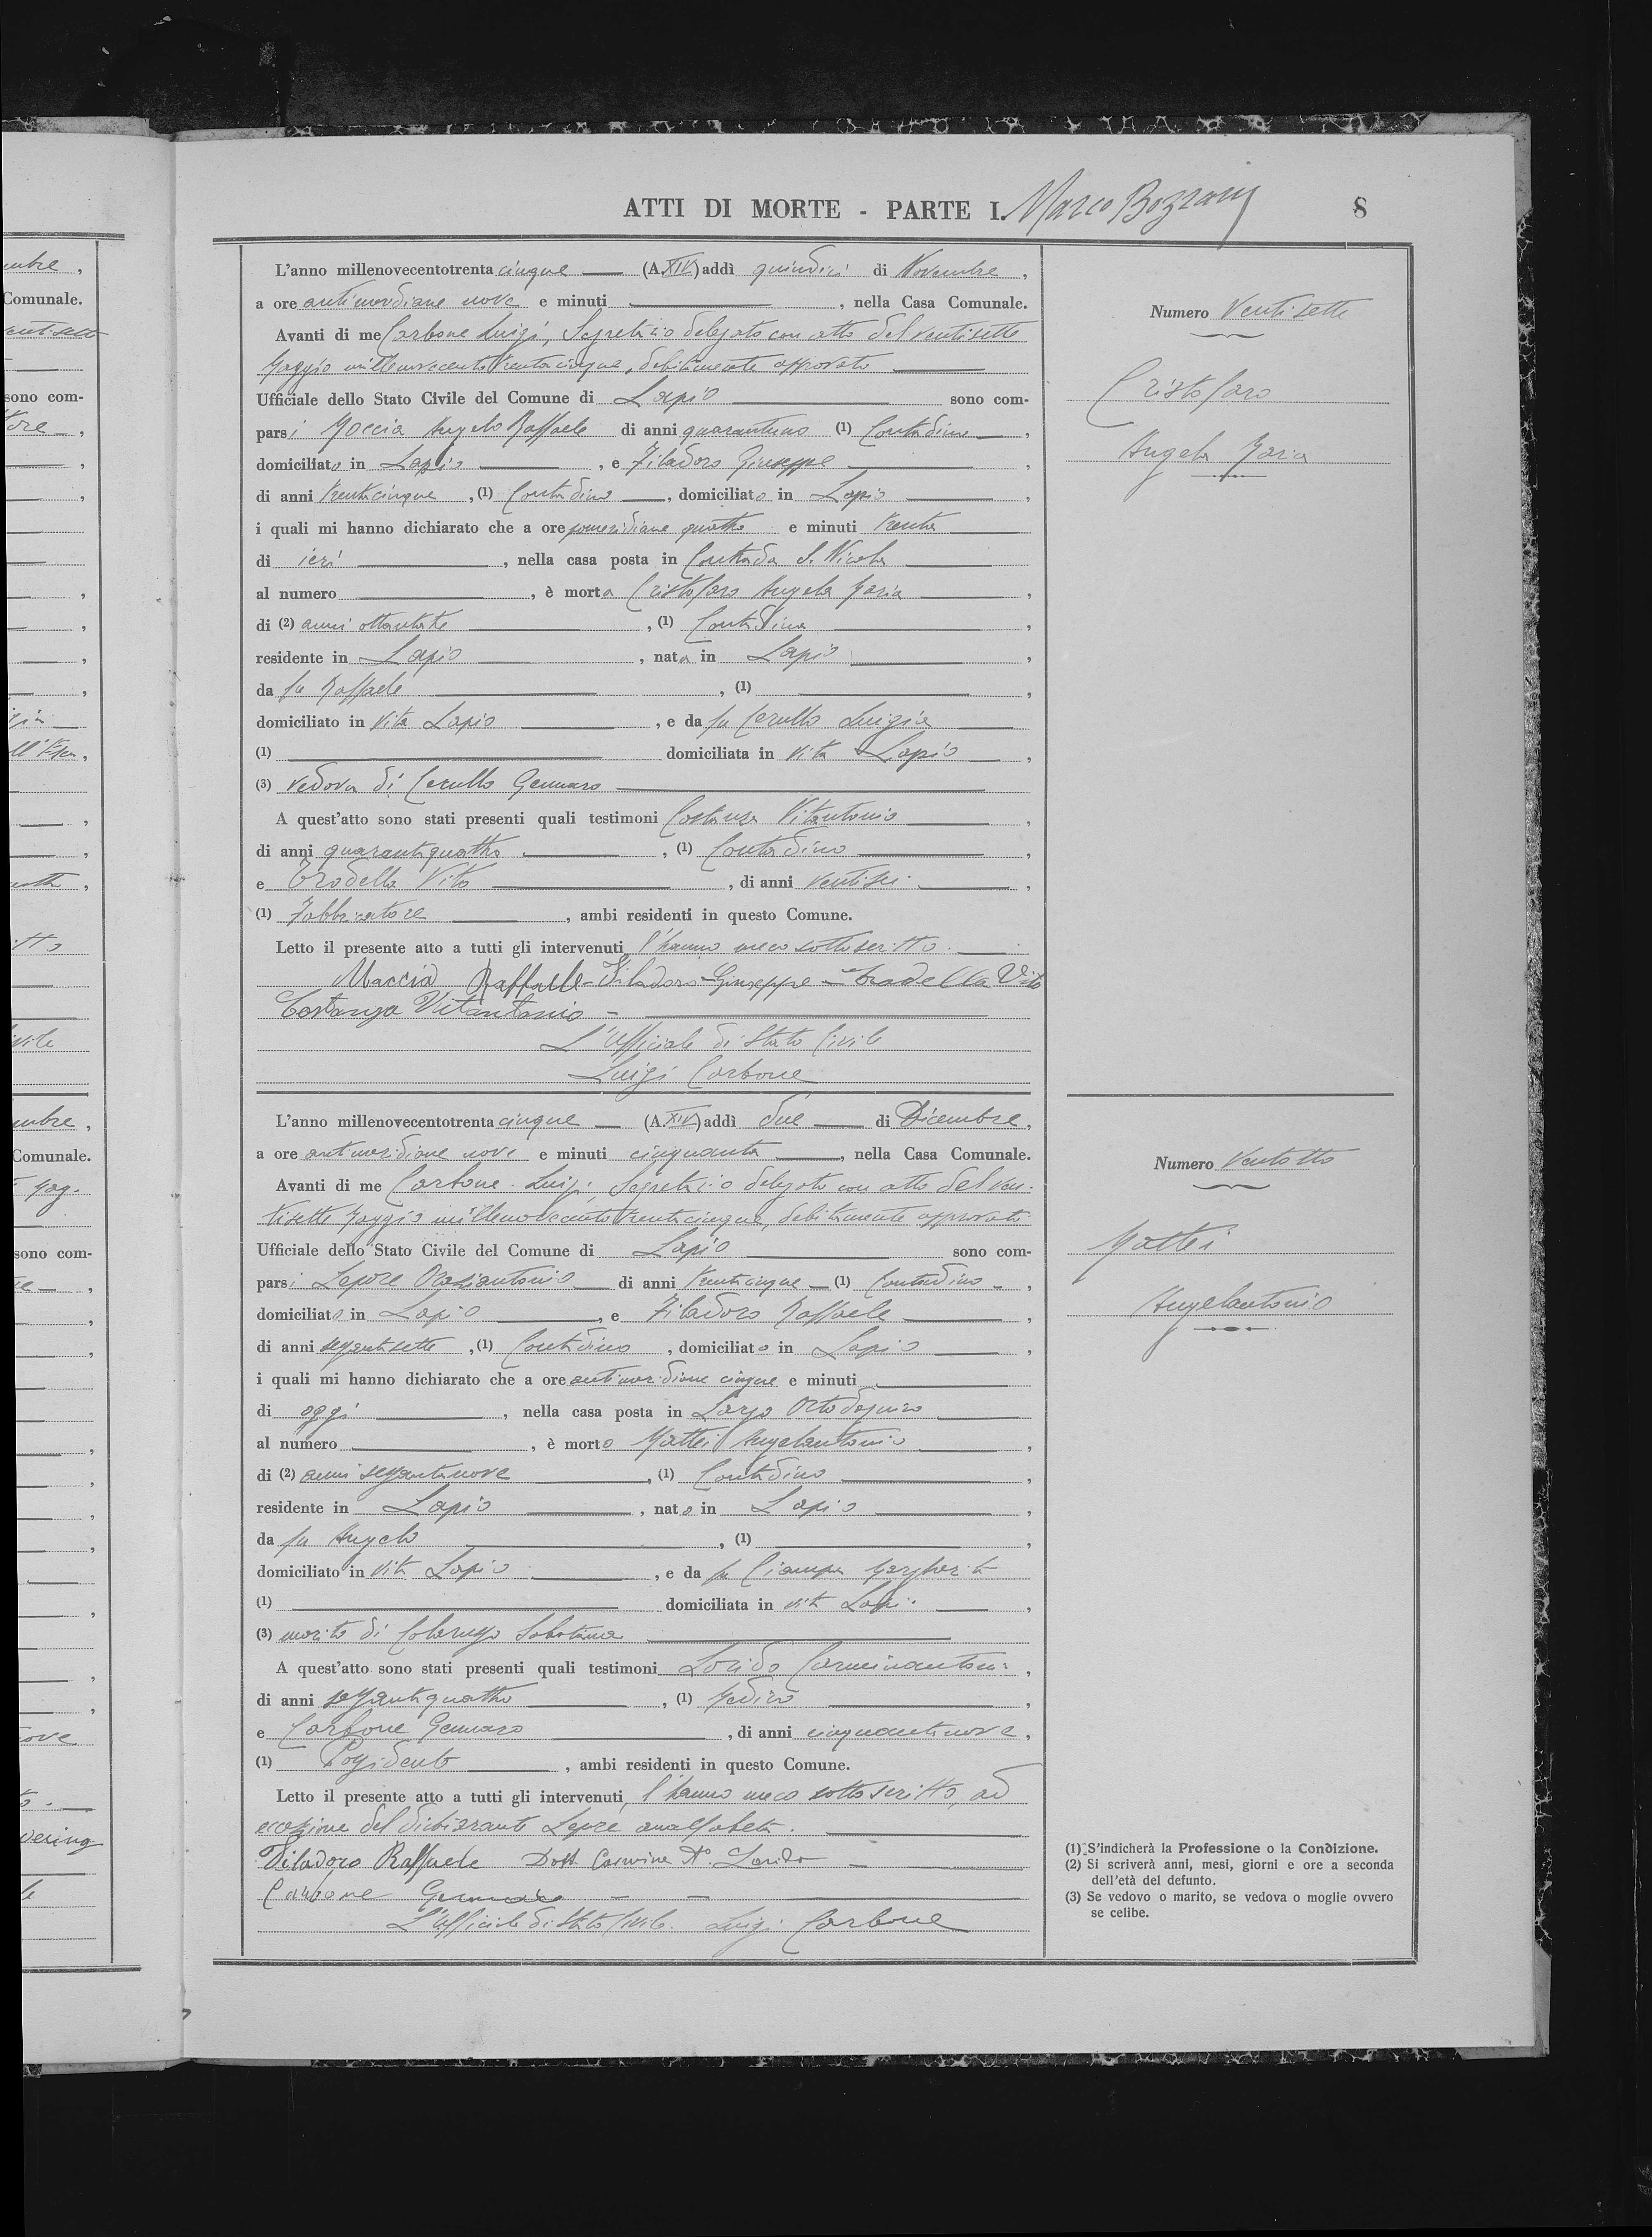 ATTI DI MORTE - PARTE I. Marco Bozzany 8
L'anno millenovecentotrenta cinque (A. XIV) addì quindici di Novembre,
a ore antimeridiane nove e minuti , nella Casa Comunale.
Avanti di me Carbone Luigi, Segretario delegato con atto del ventisette
Maggio millenovecentotrentacinque, debitamente approvato
Ufficiale dello Stato Civile del Comune di Lapio sono com-
parsi Moccia Angelo Raffaele di anni quarantuno (1) Contadino,
domiciliato in Lapio, e Filadoro Giuseppe,
di anni trentacinque, (1) Contadino, domiciliato in Lapio,
i quali mi hanno dichiarato che a ore pomeridiane quattro e minuti trenta
di ieri, nella casa posta in Contrada S. Nicola
al numero , è morta Cristofaro Angela Maria,
di (2) anni , (1) Contadina,
residente in Lapio, nata in Lapio,
da fu Raffaele, (1) ,
domiciliato in vita Lapio, e da fu Cerullo Luigia
(1) domiciliata in vita Lapio,
(3) vedova di Cerullo Gennaro
A quest'atto sono stati presenti quali testimoni Costanza Vitantonio,
di anni quarantaquattro, (1) Contadino,
e Trodella Vito, di anni ventisei,
(1) Fabbricatore, ambi residenti in questo Comune.
Letto il presente atto a tutti gli intervenuti l'hanno meco sottoscritto.
Maccia Raffaele - Filadoro Giuseppe - Tradella Vito
Costanza Vitantonio -
L'Ufficiale di Stato Civile
Luigi Carbone
Numero Ventisette
Cristofaro
Angela Maria
L'anno millenovecentotrenta cinque (A. XIV) addì due di Dicembre,
a ore antimeridiane nove e minuti cinquanta, nella Casa Comunale.
Avanti di me Carbone Luigi, Segretario delegato con atto del ven-
tisette Maggio millenovecentotrentacinque, debitamente approvato
Ufficiale dello Stato Civile del Comune di Lapio sono com-
parsi Lepore Oraziantonio di anni trentacinque (1) Contadino,
domiciliato in Lapio, e Filadoro Raffaele,
di anni sessantasette, (1) Contadino, domiciliato in Lapio,
i quali mi hanno dichiarato che a ore antimeridiane cinque e minuti
di oggi, nella casa posta in Largo
al numero , è morto Mattei Angelantonio,
di (2) anni sessantanove, (1) Contadino,
residente in Lapio, nato in Lapio,
da fu Angelo, (1) ,
domiciliato in vita Lapio, e da fu Ciampa Margherita
(1) domiciliata in vita Lapio,
(3) marito di Colarusso Sabatina
A quest'atto sono stati presenti quali testimoni Lorido Carminantonio,
di anni sessantaquattro, (1) Medico,
e Carbone Gennaro, di anni cinquantanove,
(1) Possidente, ambi residenti in questo Comune.
Letto il presente atto a tutti gli intervenuti, l'hanno meco sottoscritto, ad
eccezione del dichiarante Lepore analfabeta.
Filadoro Raffaele Dott. Carmine A. Lorido
Carbone Gennaro
L'Ufficiale di Stato Civile Luigi Carbone
Numero Ventotto
Mattei
Angelantonio
(1) S'indicherà la Professione o la Condizione.
(2) Si scriverà anni, mesi, giorni e ore a seconda
dell'età del defunto.
(3) Se vedovo o marito, se vedova o moglie ovvero
se celibe.